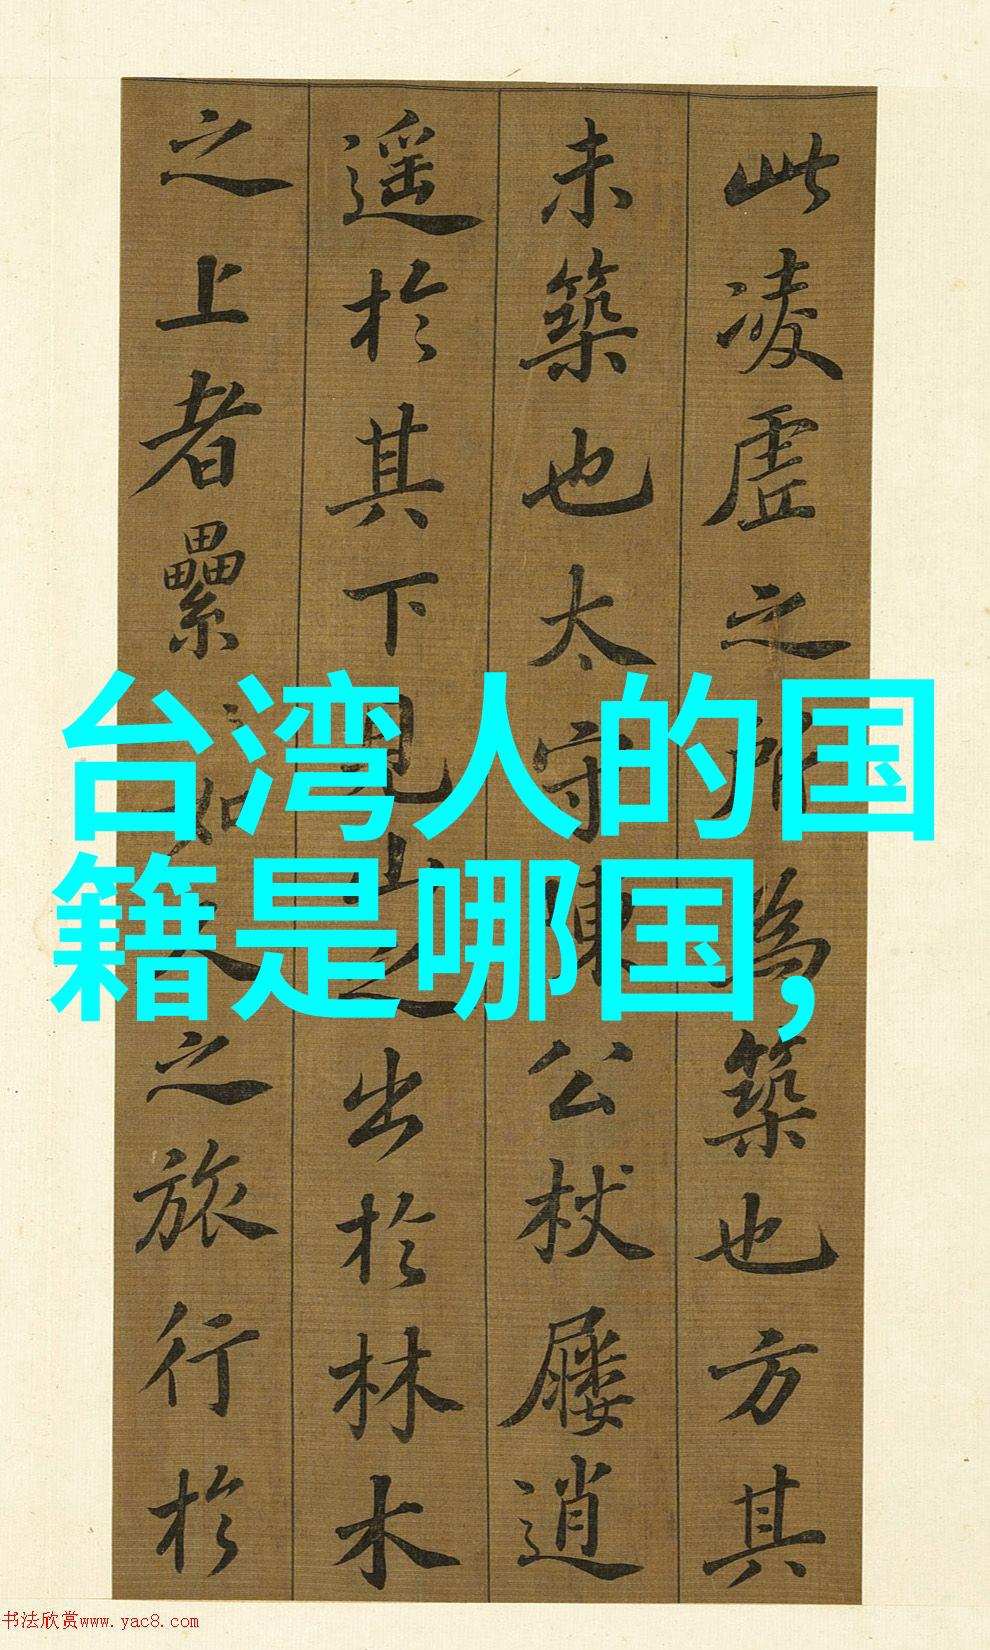 此凌虚之所為築也方其
未築也太守陳公杖屨逍
遥於其下見山之出於林木
之上者纍纍如人之旅行於
台湾人的国
籍是哪国,
书法欣赏www.yac8.com